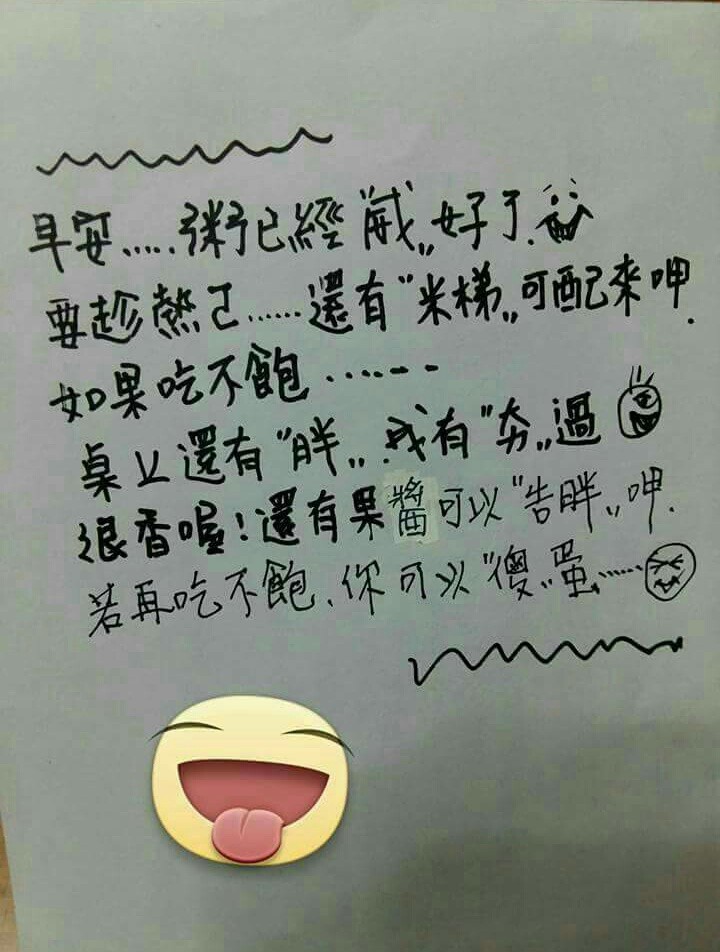 早安.....粥已經"威"好了.
要趁熱ㄛ......還有"米梯"可配來呷.
如果吃不飽.......
桌上還有"胖"我有"夯"過
很香喔!還有果醬可以"告胖"呷.
若再吃不飽.你可以"傻"蛋......